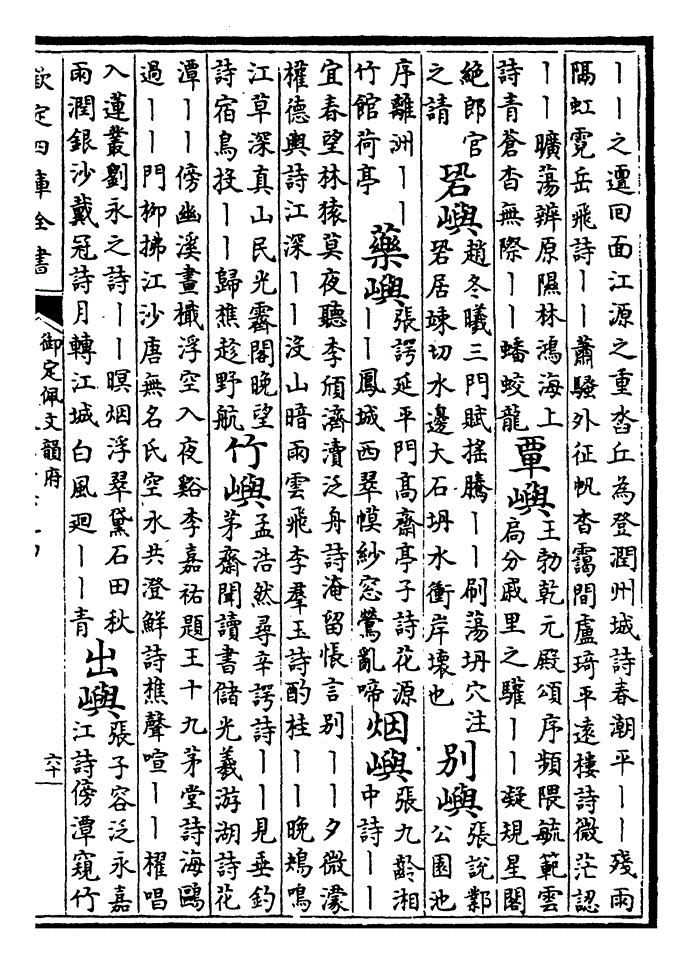 丨丨之還回面江源之重沓丘為登潤州城詩春潮平丨丨殘雨
隔虹霓岳飛詩丨丨蕭騷外征帆杳靄間盧琦平遠樓詩微茫認
丨丨曠蕩辨原隰林鴻海上
詩青蒼杳無際丨丨蟠蛟龍
覃嶼
王勃乾元殿頌序頻隈毓範雲
局分戚里之驩丨丨凝規星閣
絶郎官
之請
硌嶼
趙冬曦三門賦搖騰丨丨刷蕩坍穴注
硌居竦切水邊大石坍水衝岸壞也
别嶼
張說鄴
公園池
序離洲丨丨
竹館荷亭
藥嶼
張諤延平門高齋亭子詩花源
丨丨鳳城西翠幙紗窓鶯亂啼
烟嶼
張九齡湘
中詩丨丨
宜春望林猿莫夜聽李頎濟瀆泛舟詩淹留悵言别丨丨夕微濛
權德輿詩江深丨丨没山暗雨雲飛李羣玉詩酌桂丨丨晚鴂鳴
江草深真山民光霽閣晚望
詩宿鳥投丨丨歸樵趁野航
竹嶼
孟浩然尋辛諤詩丨丨見垂釣
茅齋聞讀書儲光羲游湖詩花
潭丨丨傍幽溪畫檝浮空入夜谿李嘉祐題王十九茅堂詩海鷗
過丨丨門柳拂江沙唐無名氏空水共澄鮮詩樵聲喧丨丨櫂唱
入蓮叢劉永之詩丨丨暝烟浮翠黛石田秋
雨潤銀沙戴冠詩月轉江城白風迴丨丨青
出嶼
張子容泛永嘉
江詩傍潭窺竹
欽定四庫全書
御定佩文韻府
六十